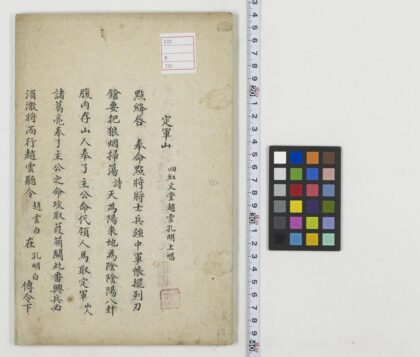 定軍山
四紅文堂趙雲孔明上唱
點絳唇 奉命點將將士兵強中軍帳擺列刀
鎗要把狼烟掃蕩 詩 天為陽來地為陰陰陽八卦
腹內存山人奉了主公命代領人馬取定軍 山人
諸葛亮奉了主公之命攻取葭萌關此番興兵必
須激將而行趙雲聽令 趙雲白 在 孔明白 傳令下